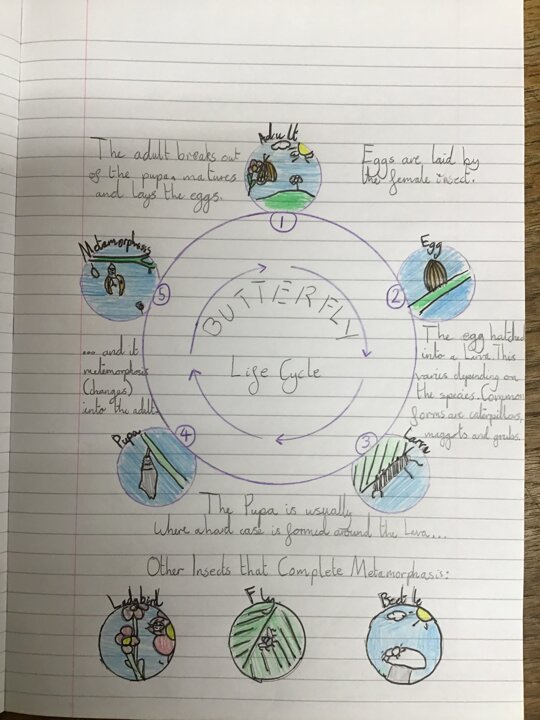 Adult
The adult breaks out
of the pupa, matures
and lays the eggs.
Eggs are laid by
the female insect.
1
Metamorphosis
5
Egg
2
BUTTERFLY
Life Cycle
The egg hatched
into a Larva. This
varies depending on
the species. Common
forms are caterpillars,
maggots and grubs.
.... and it
metamorphosis
(changes)
into the adult.
Pupa
4
3
Larva
The Pupa is usually
where a hard case is formed around the Larva...
Other Insects that Complete Metamorphosis:
Ladybird
Fly
Beetle